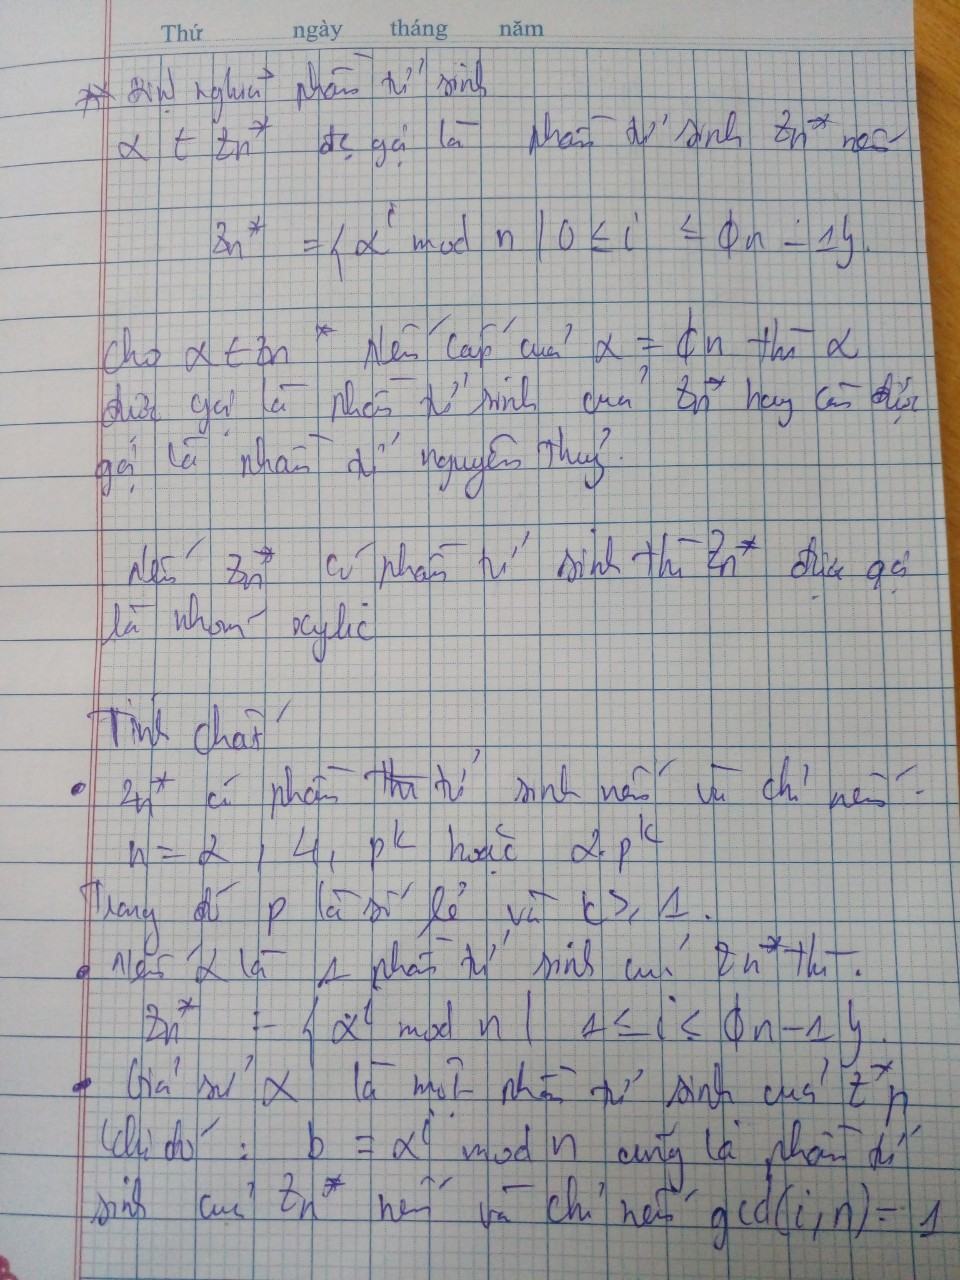 Thứ ngày tháng năm
* Định nghĩa phần tử sinh
α ∈ Zn* đc gọi là phần tử sinh Zn* nếu
Zn* = { α^i mod n | 0 ≤ i ≤ ϕn - 1 }.
Cho α ∈ Zn* Nếu cấp của α = ϕn thì α
được gọi là phần tử sinh của Zn* hay còn được
gọi là phần tử nguyên thuỷ.
Nếu Zn* có phần tử sinh thì Zn* được gọi
là nhóm xylic
Tính chất
• Zn* có phần tử sinh nếu và chỉ nếu
n = 2, 4, p^k hoặc 2.p^k
Trong đó p là số lẻ và k ≥ 1.
• Nếu α là 1 phần tử sinh của Zn* thì.
Zn* = { α^i mod n | 1 ≤ i ≤ ϕn - 1 }.
• Giả sử α là một phần tử sinh của Z*n
Khi đó : b = α^i mod n cũng là phần tử
sinh của Zn* nếu và chỉ nếu gcd(i,n) = 1